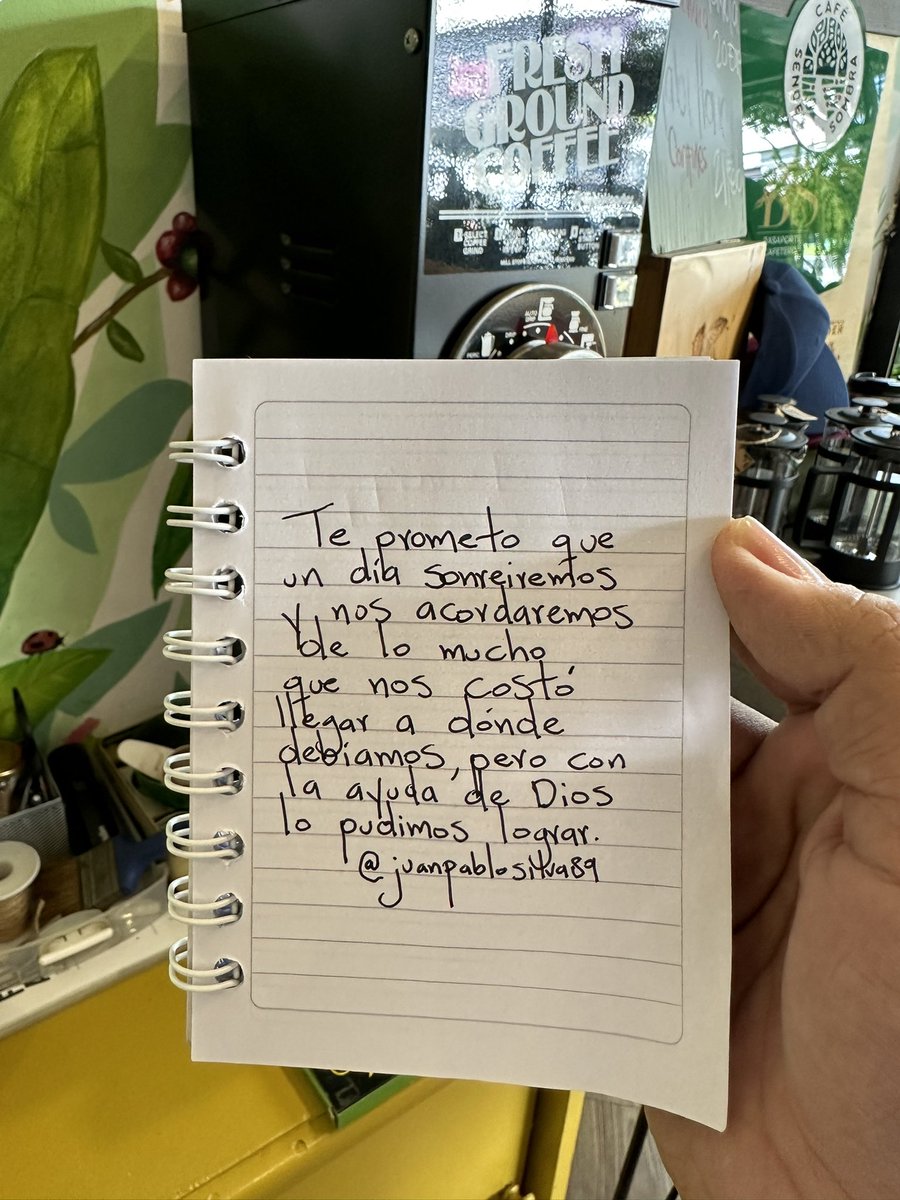 FRESH
GROUND
COFFEE
CAFÉ
SOMBRA
Te prometo que
un día sonreiremos
y nos acordaremos
de lo mucho
que nos costó
llegar a dónde
debíamos, pero con
la ayuda de Dios
lo pudimos lograr.
@juanpablosilva89